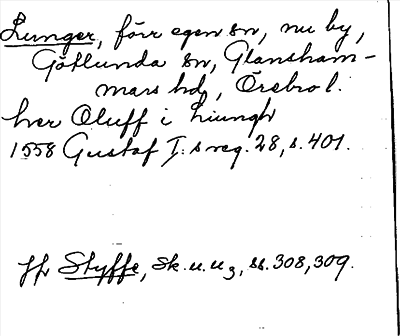 Lunger, förr egen sn, nu by,
Götlunda sn, Glansham-
mars hd, Örebro l.
her Oluff i Liungh
1558 Gustaf I:s reg. 28, s. 401.
Jfr Styffe, Sk. u. u 3, ss. 308, 309.